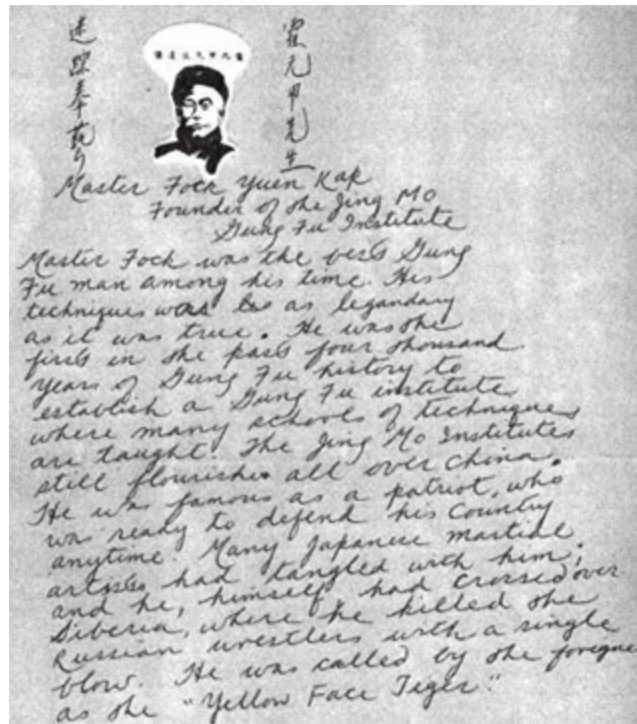 迷踪拳
霍元甲先生
Master Fock Yuen Kap
Founder of the Jing Mo
Gung Fu Institute
Master Fock was the best Gung
Fu man among his time. His
techniques was as legandary
as it was true. He was the
first in the past four thousand
years of Gung Fu history to
establish a Gung Fu institute
where many schools of techniques
are taught. The Jing Mo Institutes
still flourishes all over China.
He was famous as a patriot, who
was ready to defend his country
anytime. Many Japanese martial
artists had tangled with him;
and he, himself had crossed over
Siberia, where he killed the
Russian wrestlers with a single
blow. He was called by the foreigne
as the "Yellow Face Tiger."